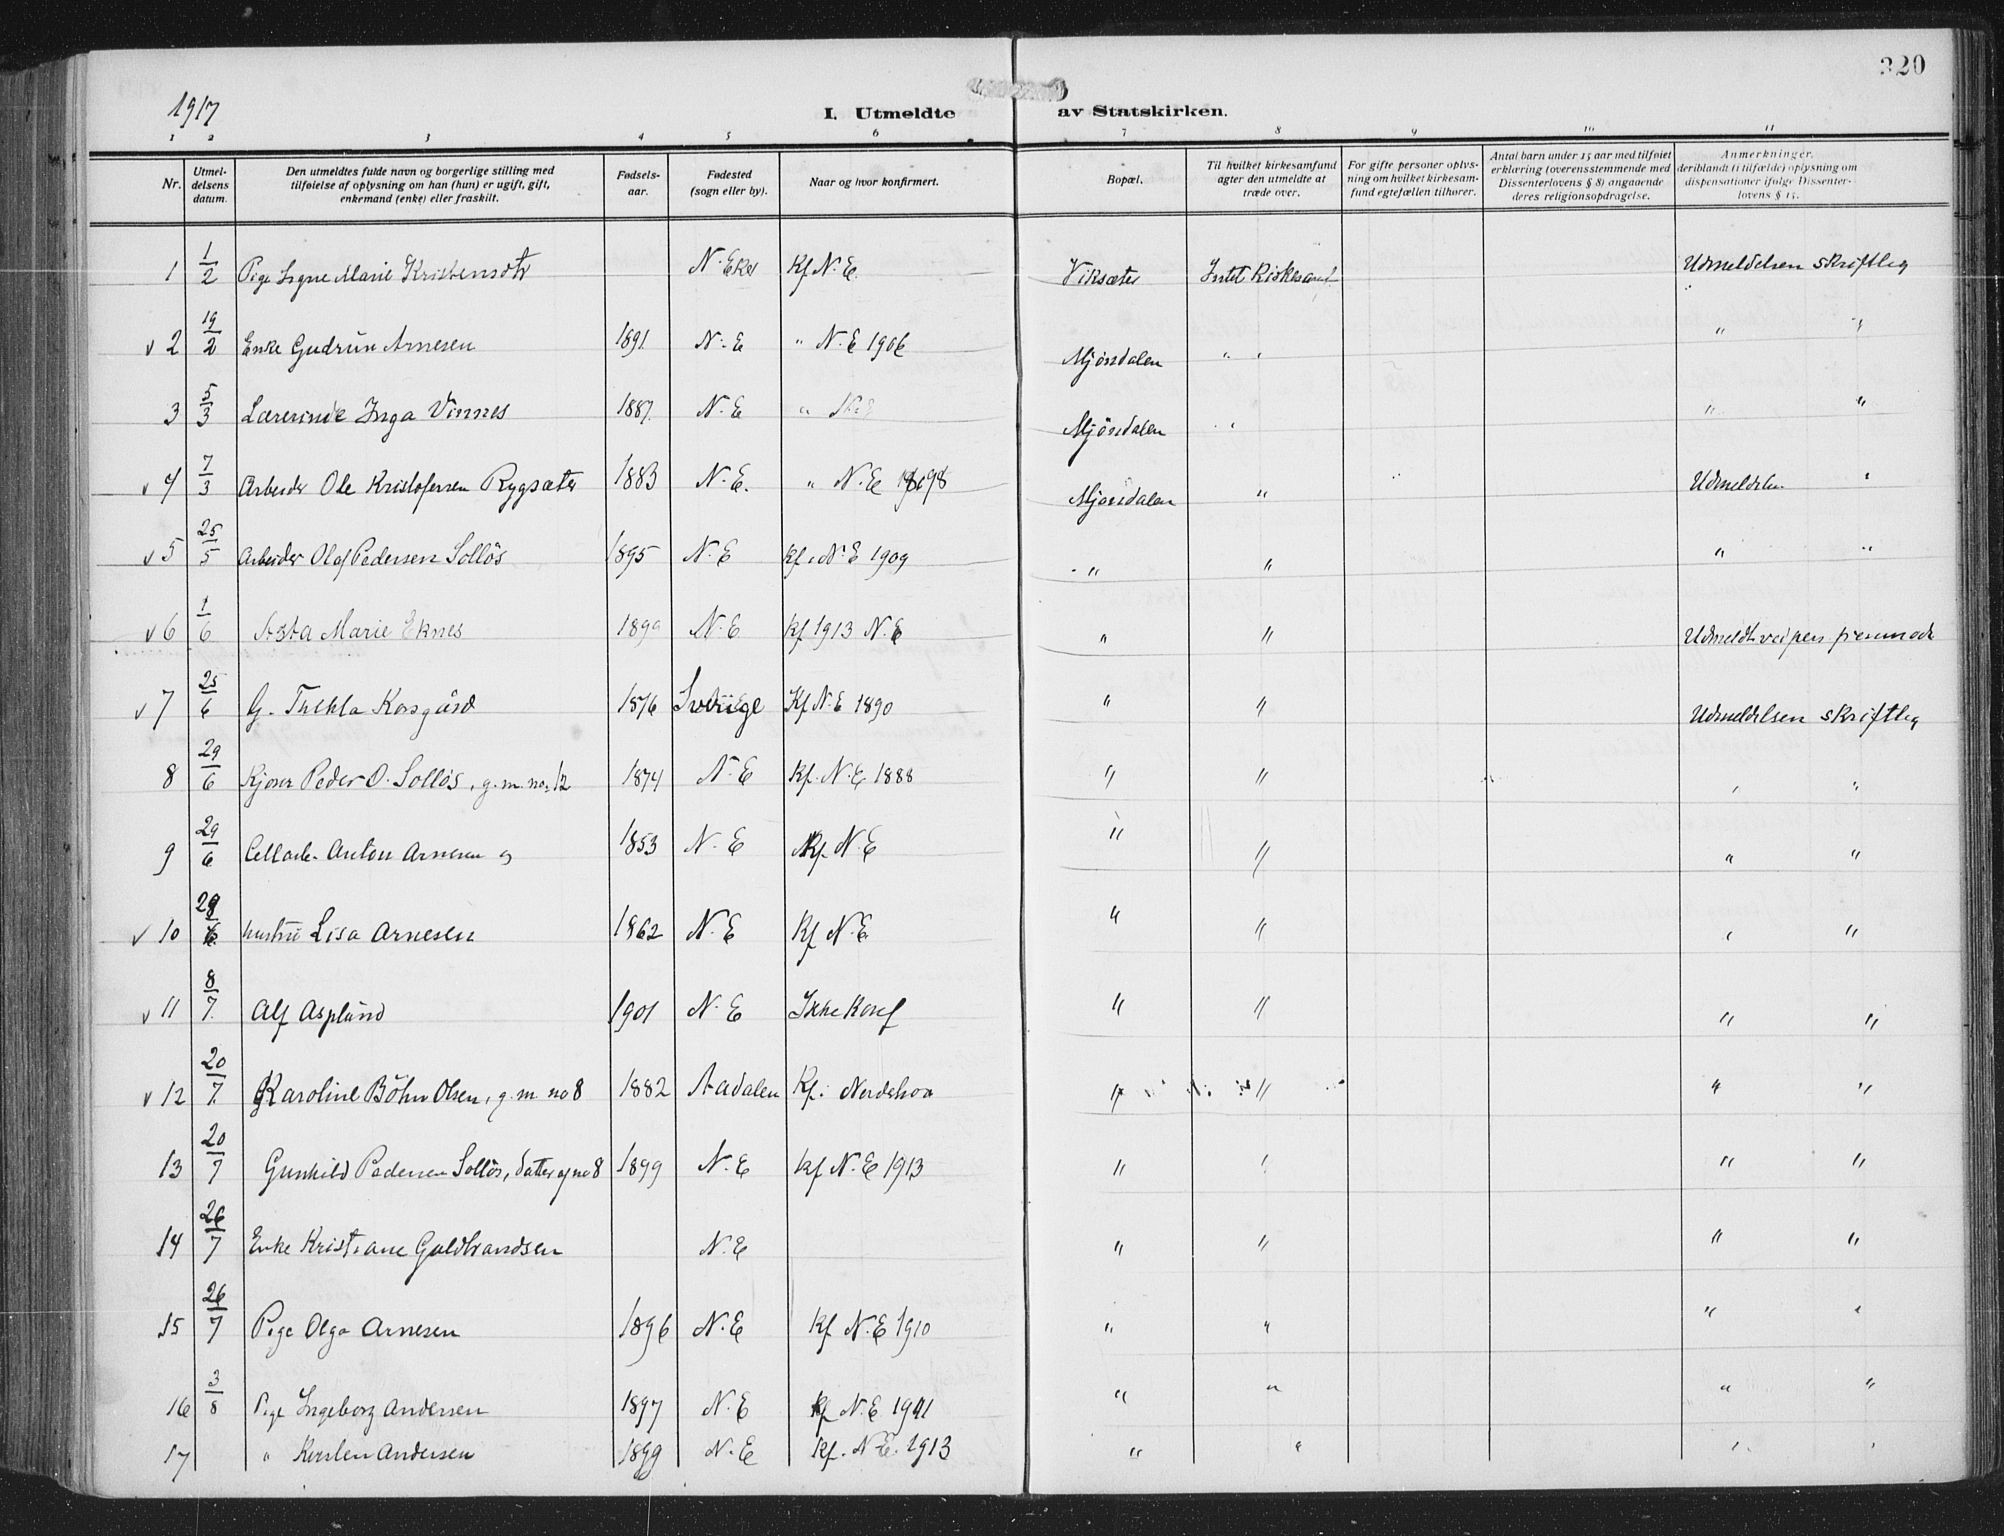 320
1917
I. Utmeldte av Statskirken.
1 2 3 4 5 6 7 8 9 10 11
Nr. | Utmel-delsens datum. | Den utmeldtes fulde navn og borgerlige stilling med tilføielse af oplysning om han (hun) er ugift, gift, enkemand (enke) eller fraskilt. | Fødsels-aar. | Fødested (sogn eller by). | Naar og hvor konfirmert. | Bopæl. | Til hvilket kirkesamfund agter den utmeldte at træde over. | For gifte personer oplys-ning om hvilket kirkesam-fund egtefællen tilhører. | Antal barn under 15 aar med tilføiet erklæring (overensstemmende med Dissenterlovens § 8) angaaende deres religionsopdragelse. | Anmerkninger, deriblandt (i tilfælde) oplysning om dispensationer ifølge Dissenter-lovens § 15.
1 1/2 Pige Signe Marie Kristensdtr N. Eker Kf N. E. Viksæter Intet Udmeldelsen skriftlig
v 2 19/2 Enke Gudrun Arnesen 1891 N. E " N. E 1906 Mjøndalen " " " "
3 5/3 Lærerinde Inga Vinnes 1887 N. E " N. E Mjøndalen " " "
v 4 7/3 Arbeider Ole Kristofersen Rygsæter 1883 N. E. " N. E 1898 Mjøndalen " Udmeldelsen "
v 5 25/5 Arbeider Olaf Pedersen Solløs 1895 N. E Kf. N. E 1909 " " " "
v 6 1/6 Asta Marie Eknes 1899 N. E Kf 1913 N. E " "
v 7 25/6 G. Thekla Korsgård 1876 Sverige Kf N. E 1890 " " Udmeldelsen skriftlig
8 29/6 Kjører Peder O. Solløs, g. m. no. 12 1874 N. E Kf. N. E 1888 " " " "
9 29/6 Anton Arnesen og 1853 N. E Kf. N. E " " " "
v 10 29/6 hustru Lisa Arnesen 1862 N. E Kf N. E " " " "
v 11 8/7 Alf Asplund 1901 N. E Ikke Konf " " " "
v 12 20/7 Karoline Böhn Olsen, g. m no 8 1882 Aadalen Kf. Norderhov " " " "
13 20/7 Gunhild Pedersen Solløs, datter af no 8 1899 N. E Kf N. E 1913 " " " "
14 26/7 Enke Kristiane Guldbrandsen N. E " " " "
15 26/7 Pige Olga Arnesen 1896 N. E Kf N. E 1910 " " " "
16 3/8 Pige Ingeborg Andersen 1897 N. E Kf N. E 1911 " " " "
17 " Andersen 1899 N. E Kf. N. E. 1913 " " " "